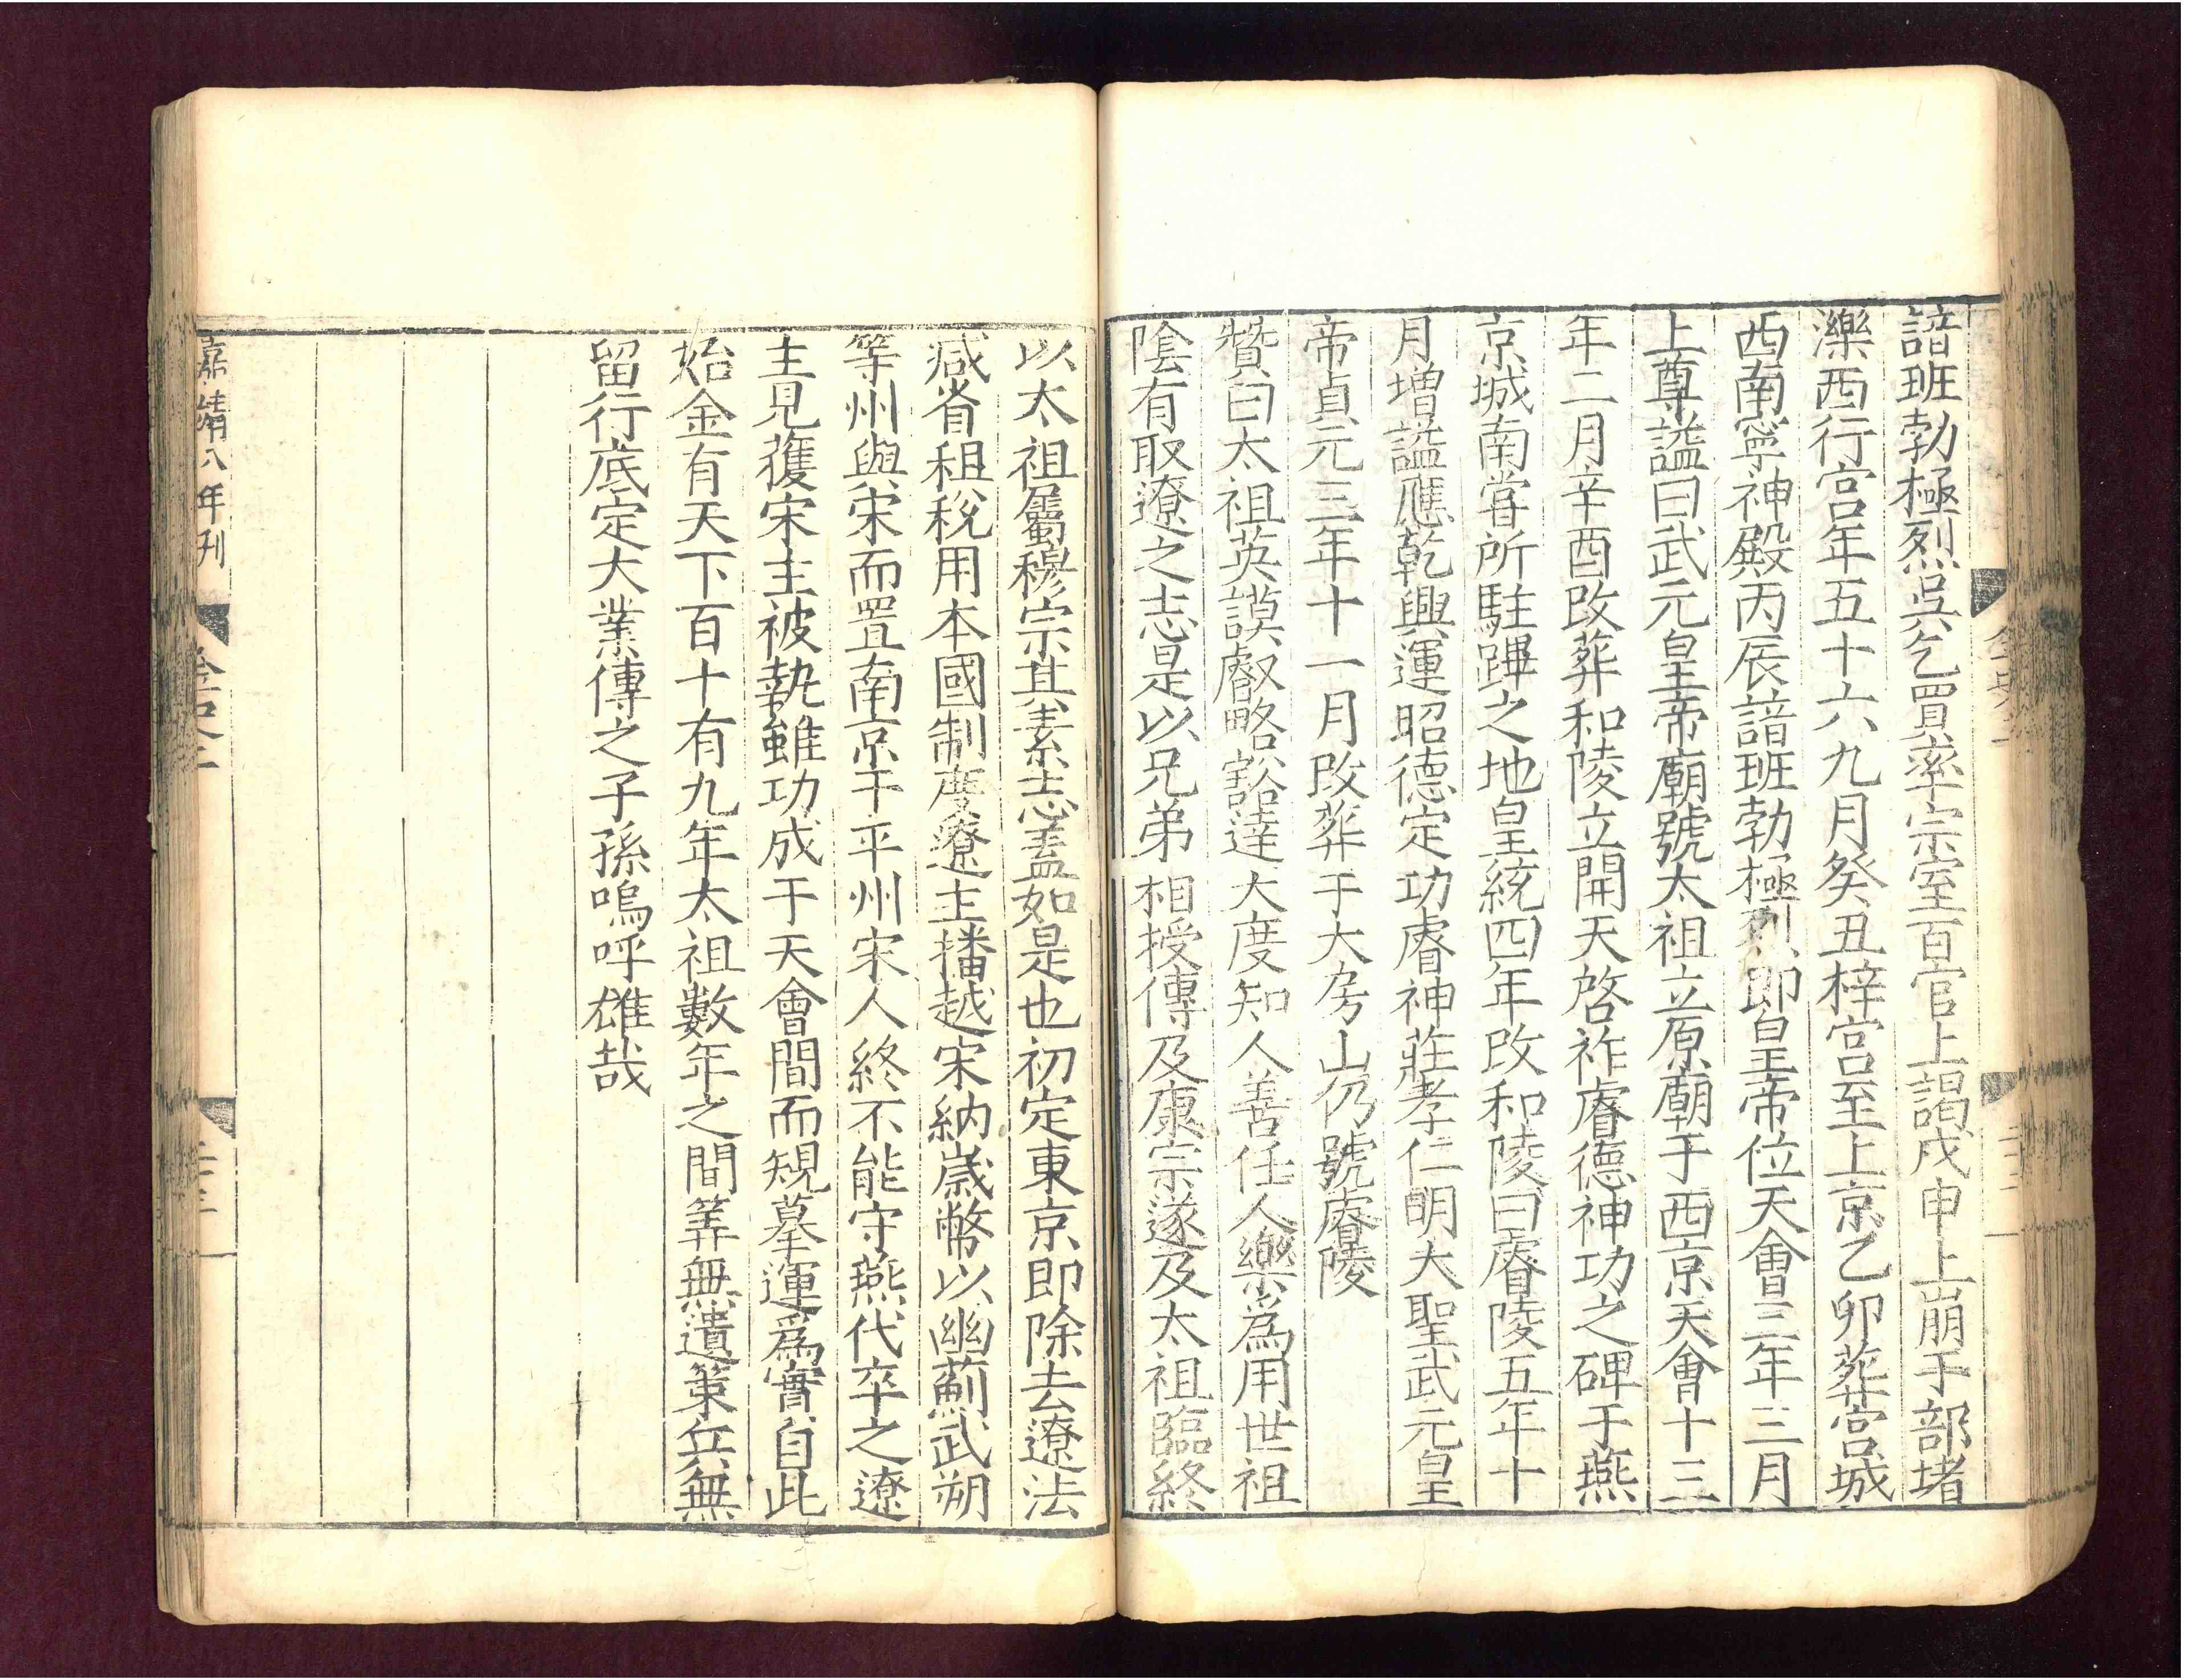 諳班勃極烈吳乞買率宗室百官上謁戊申上崩于部堵
濼西行宮年五十六九月癸丑梓宮至上京乙卯葬宮城
西南寧神殿丙辰諳班勃極烈即皇帝位天會三年三月
上尊謚曰武元皇帝廟號太祖立原廟于西京天會十三
年二月辛酉改葬和陵立開天啓祚睿德神功之碑于燕
京城南甞所駐蹕之地皇統四年改和陵曰睿陵五年十
月增謚應乾興運昭德定功睿神莊孝仁明大聖武元皇
帝貞元三年十一月改葬于大房山仍號睿陵
贊曰太祖英謨叡略豁達大度知人善任人樂爲用世祖
陰有取遼之志是以兄弟相授傳及康宗遂及太祖臨終
以太祖屬穆宗其素志盖如是也初定東京即除去遼法
减省租稅用本國制度遼主播越宋納歲幣以幽薊武朔
等州與宋而置南京于平州宋人終不能守燕代卒之遼
主見獲宋主被執雖功成于天會間而規摹運爲實自此
始金有天下百十有九年太祖數年之間筭無遺策兵無
留行底定大業傳之子孫嗚呼雄哉
嘉靖八年刊
金史二
二十三